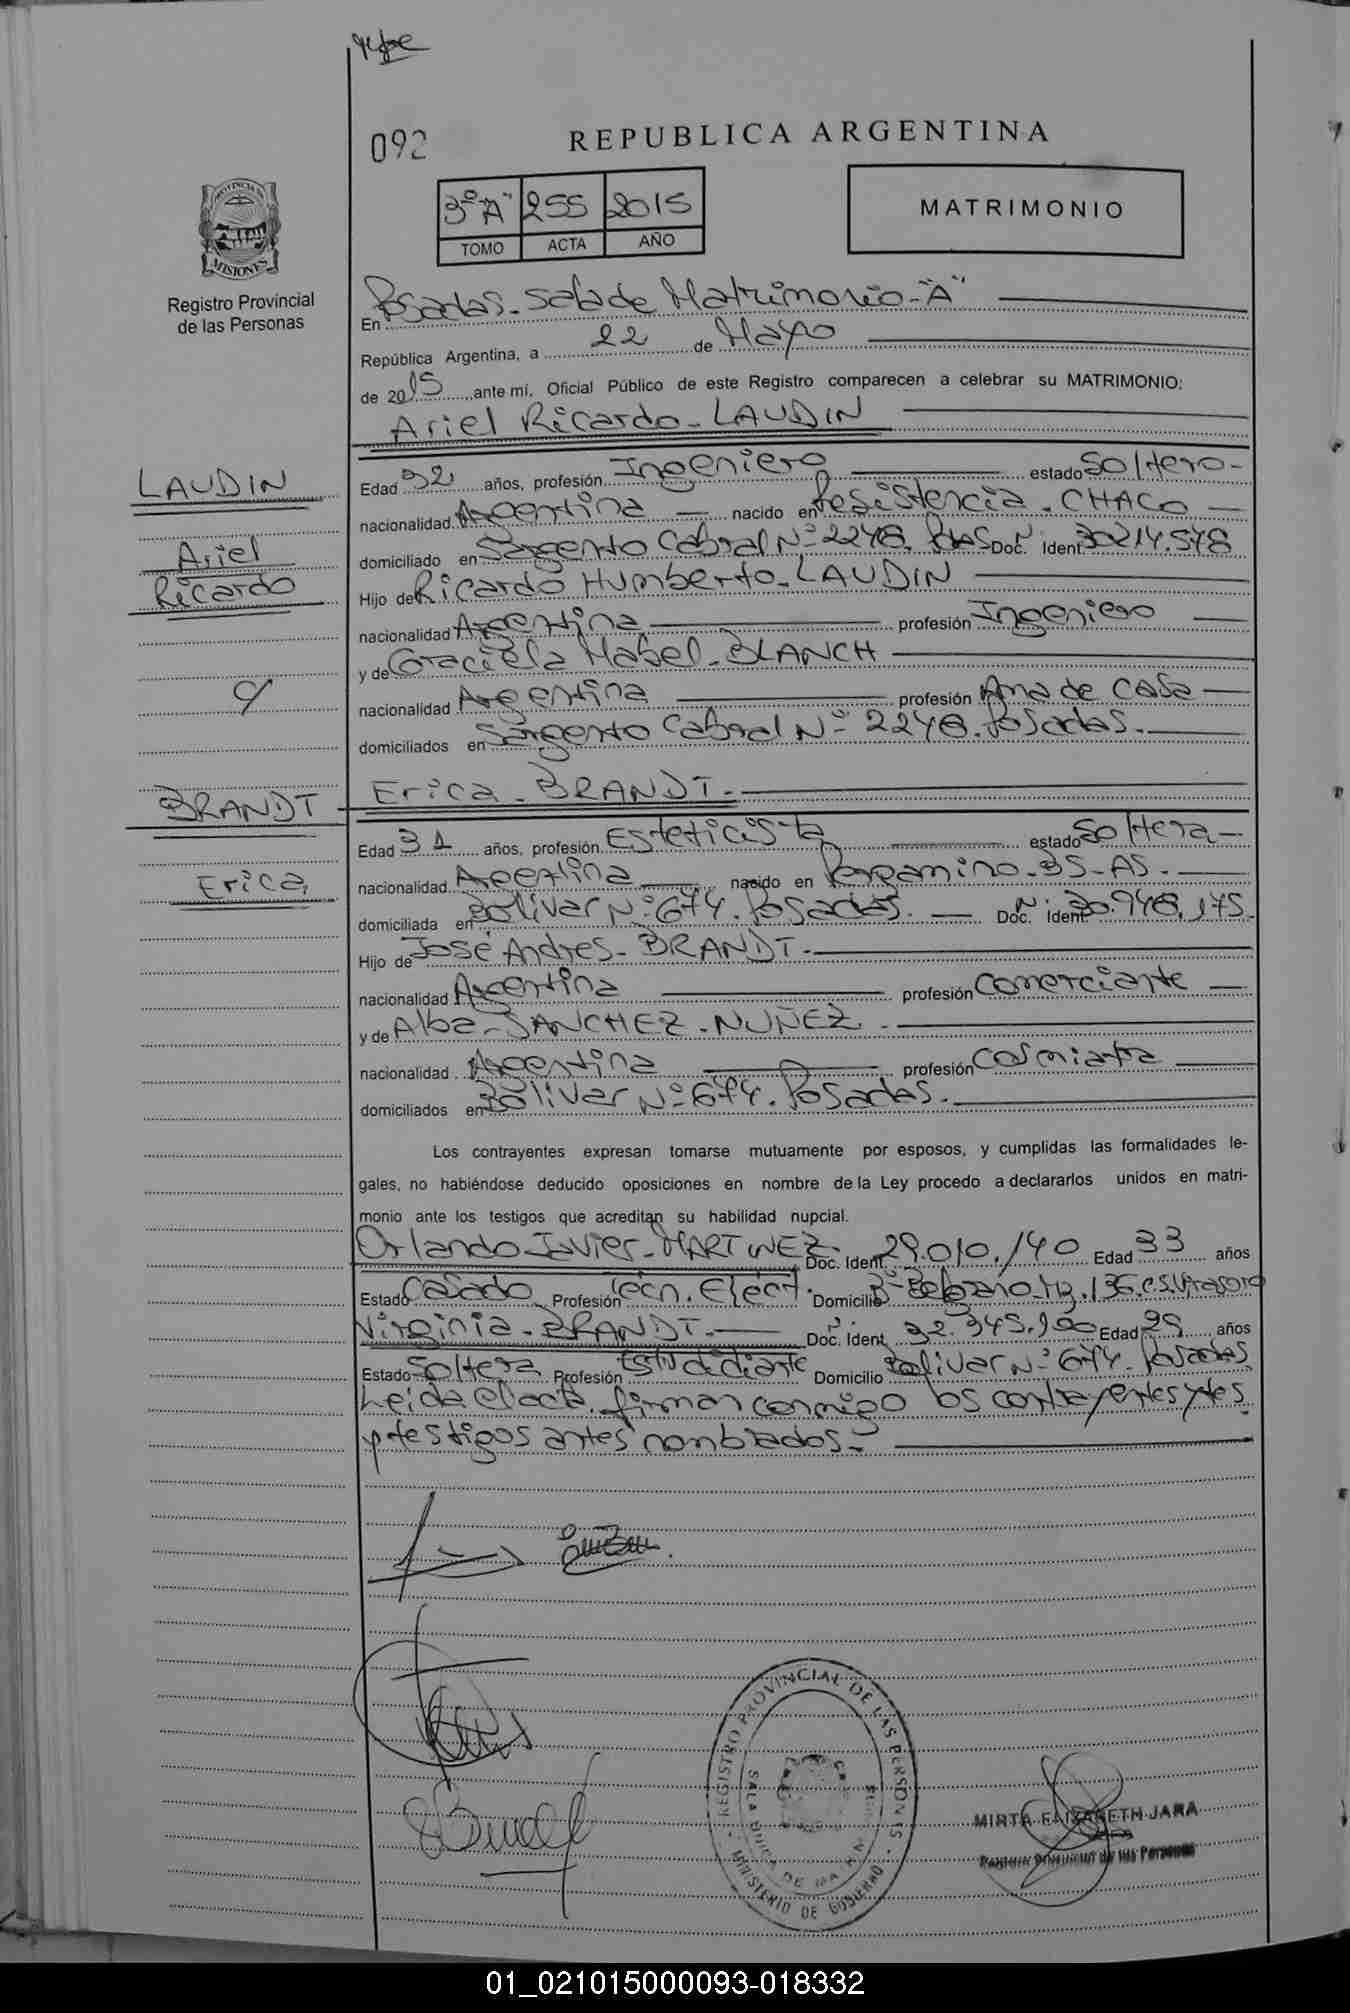 092
REPUBLICA ARGENTINA
3º "A" 255 2015
TOMO ACTA AÑO
MATRIMONIO
PROVINCIA DE
MISIONES
Registro Provincial
de las Personas
En Posadas. Sala de Matrimonio-"A"
República Argentina, a 22 de Mayo
de 2015, ante mi, Oficial Público de este Registro comparecen a celebrar su MATRIMONIO:
Ariel Ricardo. LAUDIN
LAUDIN
Ariel
Ricardo
c/
BRANDT
Erica
Edad 32 años, profesión Ingeniero estado Soltero-
nacionalidad Argentina nacido en Resistencia. CHACO
domiciliado en Sargento Cabral Nº 2248. Pdas Doc. Ident 30214.548
Hijo de Ricardo Humberto. LAUDIN
nacionalidad Argentina profesión Ingeniero
y de Graciela Mabel. BLANCH
nacionalidad Argentina profesión Ama de casa
domiciliados en Sargento Cabral Nº 2248. Posadas.
Erica. BRANDT.
Edad 31 años, profesión Esteticista estado Soltera
nacionalidad Argentina nacido en Pergamino. BS-AS.
domiciliada en Bolivar Nº 674. Posadas. Doc. Ident 30.948.175
Hijo de José Andres. BRANDT.
nacionalidad Argentina profesión Comerciante
y de Alba. SANCHEZ. NUÑEZ.
nacionalidad Argentina profesión Cosmiatra
domiciliados en Bolivar Nº 674. Posadas.
Los contrayentes expresan tomarse mutuamente por esposos, y cumplidas las formalidades le-
gales, no habiéndose deducido oposiciones en nombre de la Ley procedo a declararlos unidos en matri-
monio ante los testigos que acreditan su habilidad nupcial.
Orlando Javier. MARTINEZ. Doc. Ident. 29.010.140 Edad 33 años
Estado Casado Profesión Tecn. Elect. Domicilio Bº Belgrano Mz. 136.
Virginia. BRANDT. Doc. Ident. 32.345.900 Edad 29 años
Estado Soltera Profesión Estudidiante Domicilio Bolivar Nº 674. Posadas
Leida el acta. firman conmigo los contrayentes y tes
y testigos antes nombrados.
REGISTRO PROVINCIAL DE LAS PERSONAS
MINISTERIO DE GOBIERNO
SALA UNICA DE
MIRTA ELIZABETH JARA
Registro Provincial de las Personas
01_021015000093-018332